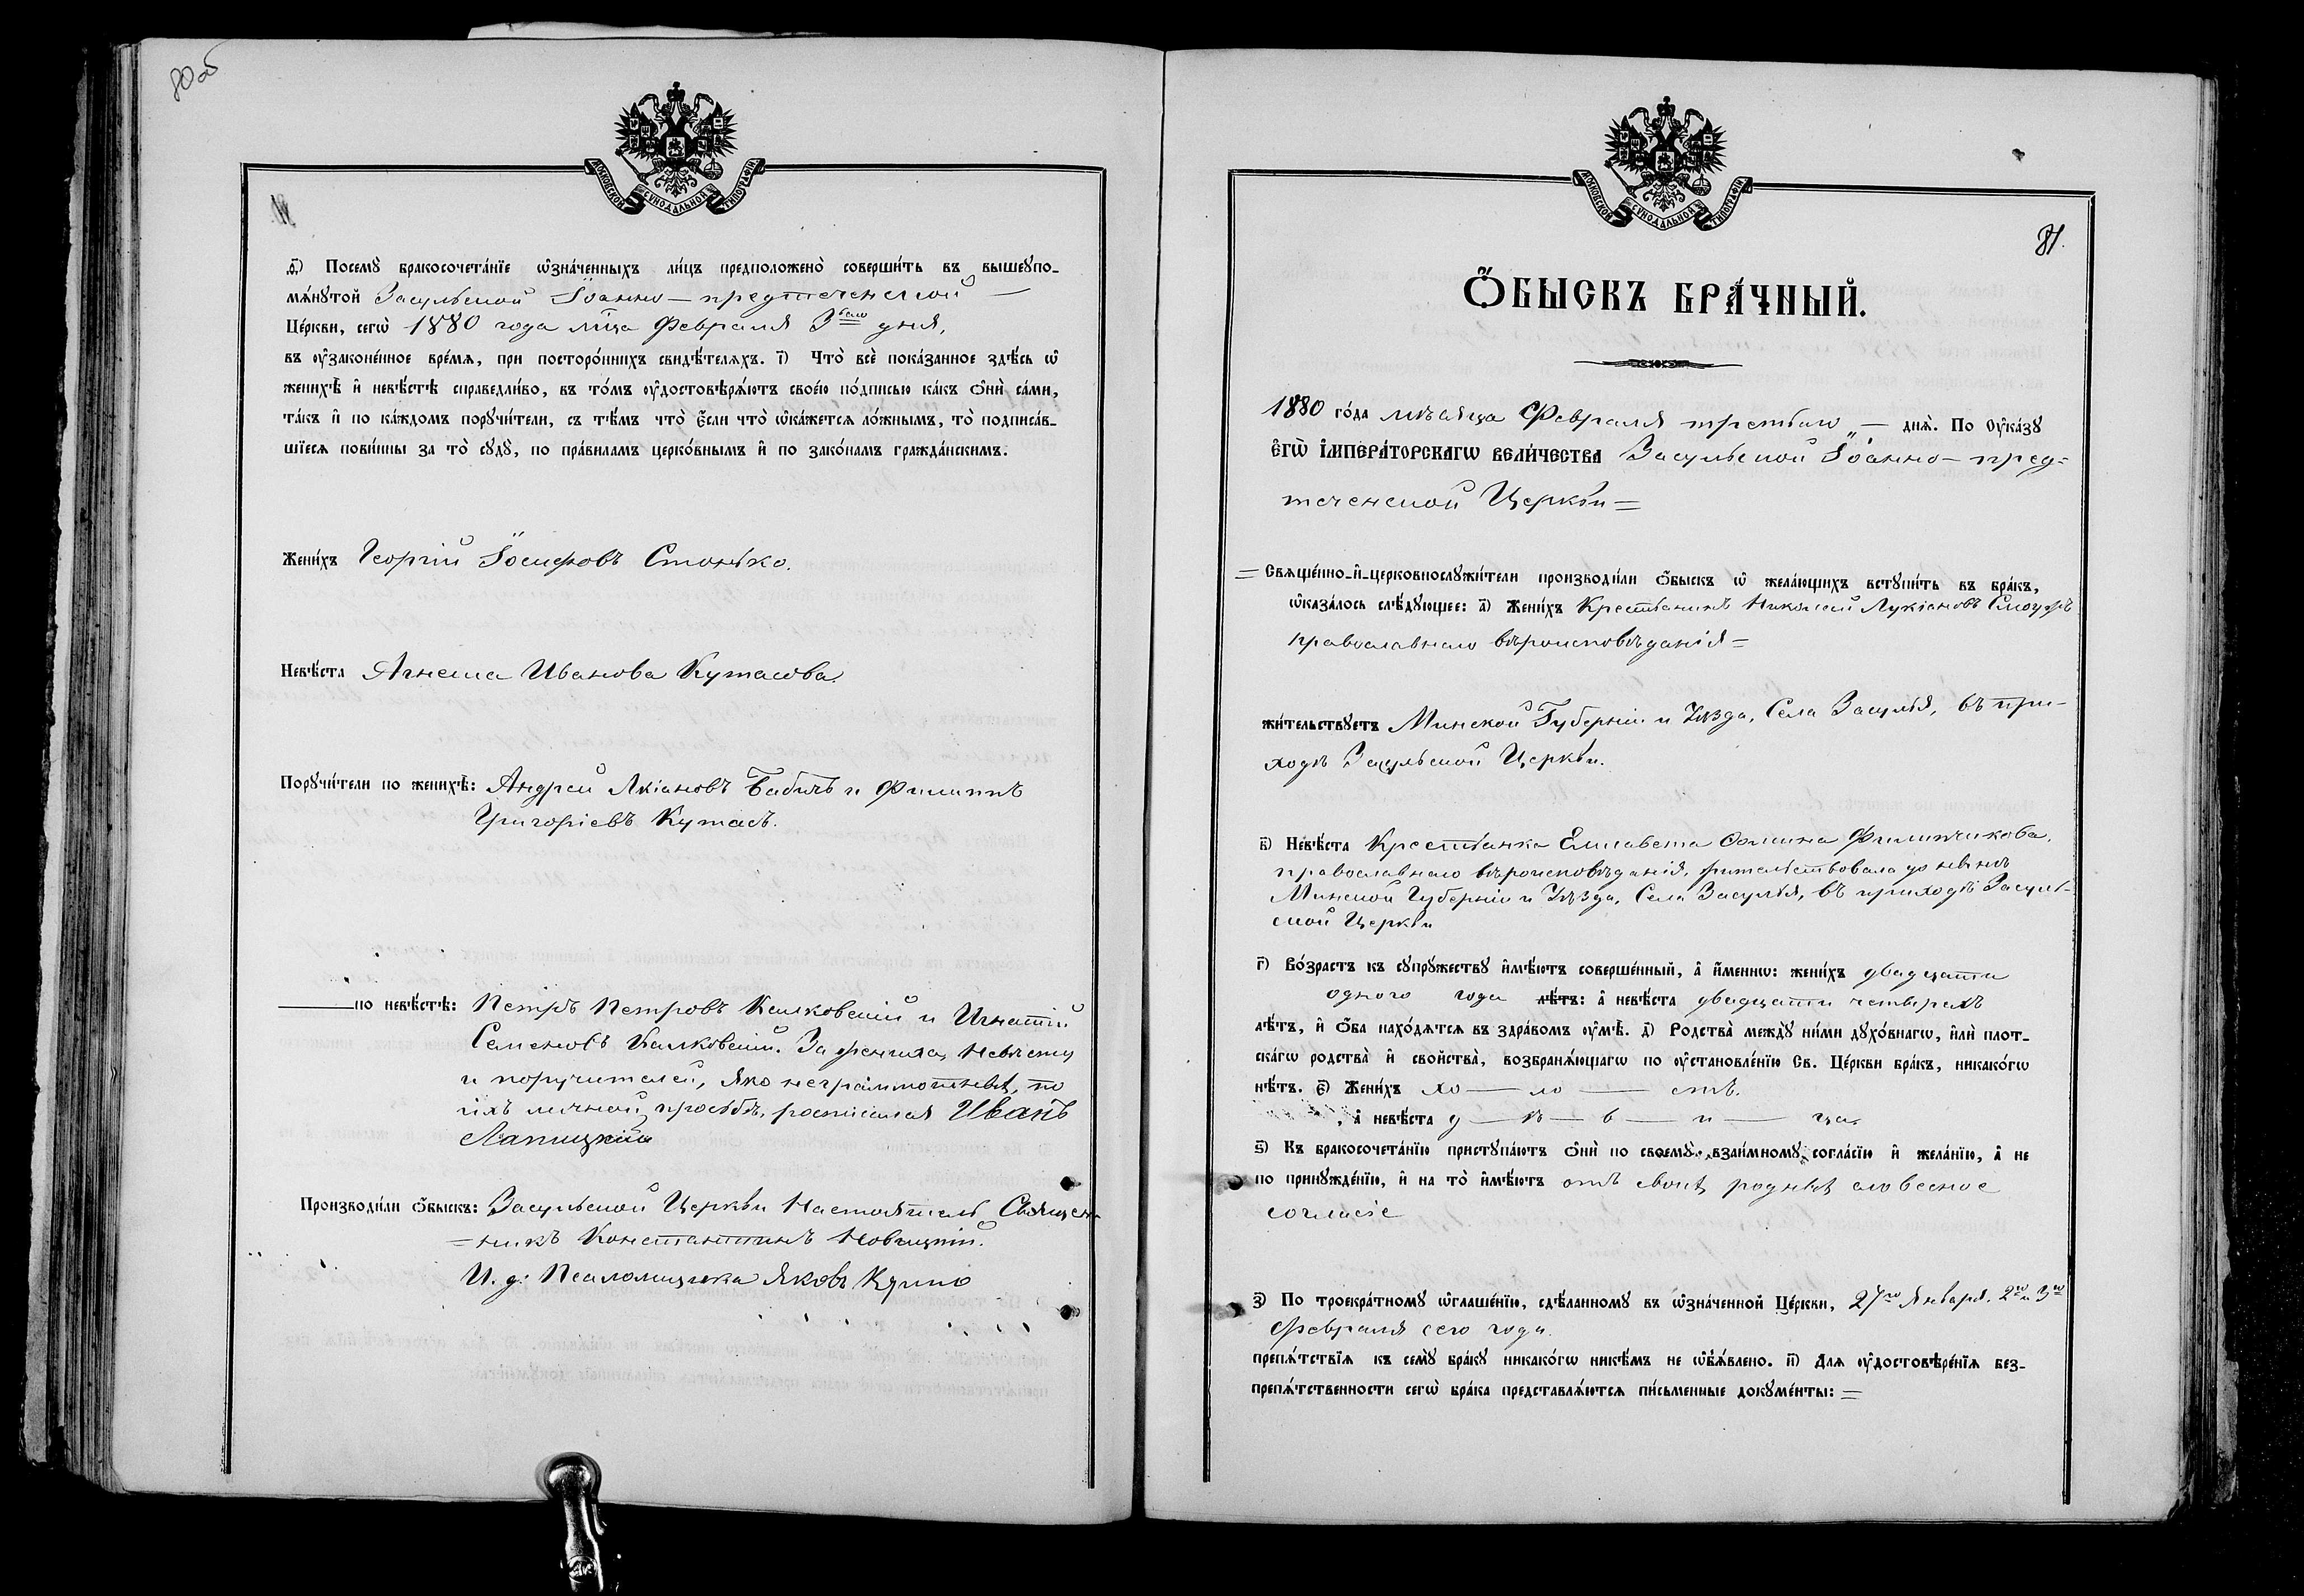 80об
МОСКОВСКОЙ СѴНОДАЛЬНОЙ ТИПОГРАФІИ
ѳ҃) Посемꙋ̀ бракосочета́нїе ѡ҆зна́ченныхъ ли́цъ предположено̀ соверши́ть въ вышеꙋпо-
мѧ́нꙋтой Засульской Іоанно — предтеченской —
Це́ркви, сегѡ̀ 1880 года мца Февраля 3ьяго дня,
въ ᲂу҆зако́ненное вре́мѧ, при посторо́ннихъ свидѣ́телѧхъ. і҃) Что̀ всѐ пока́занное здѣ́сь ѡ҆
женихѣ̀ и҆ невѣ́стѣ справедли́во, въ то́мъ ᲂу҆достовѣрѧ́ютъ свое́ю по́дписью ка́къ ѻ҆нѝ са́ми,
та́къ и҆ по ка́ждомъ порꙋчи́тели, съ тѣ́мъ что̀ є҆́сли что̀ ѡ҆ка́жетсѧ ло́жнымъ, то̀ подписа́в-
шїесѧ пови́нны за то̀ сꙋдꙋ̀, по пра́виламъ церко́внымъ и҆ по зако́намъ гражда́нскимъ.
Жени́хъ Георгій Іосифовъ Стонько.
Невѣ́ста Агнеша Иванова Куташова.
Порꙋчи́тели по женихѣ̀: Андрей Лкіановъ Бабичъ и Филиппъ
Григоріевъ Куташъ.
по невѣ́стѣ: Петръ Петровъ Калковскій и Игнатій
Семеновъ Калковскій. За жениха, невѣсту
и поручителей, яко неграмотныхъ, по
ихъ личной просьбѣ, росписался Иванъ
Лапицкій
Производи́ли ѻ҆́быскъ: Засульской Церкви Настоятель Священ-
=никъ Константинъ Новицкій.
И. д. Псаломщика Яковъ
МОСКОВСКОЙ СѴНОДАЛЬНОЙ ТИПОГРАФІИ
81.
Ѻ҆́БЫСКЪ БРА́ЧНЫЙ.
1880 го́да мѣсяца Февраля третьяго — днѧ̀. По ᲂу҆ка́зꙋ
Є҆ГѠ̀ І҆МПЕРА́ТОРСКАГѠ ВЕЛИ́ЧЕСТВА Засульской Іоанно — пред=
теченской Церкви =
= Свѧще́нно-и҆-церковнослꙋжи́тели производи́ли ѻ҆́быскъ ѡ҆ жела́ющихъ встꙋпи́ть въ бра́къ,
ѡ҆каза́лось слѣ́дꙋющее: а҃) Жени́хъ Крестьянинъ Николай Лукіановъ
православнаго вѣроисповѣданія =
жи́тельствꙋетъ Минской Губерніи и Уѣзда, Села Засулья, въ при-
ходѣ Засульской Церкви.
в҃) Невѣ́ста Крестьянка Елисавета Ѳомина Филипчикова,
православнаго вѣроисповѣданія, жительствовала до нынѣ
Минской Губерніи и Уѣзда, Села Засулья, въ приходѣ Засуль-
ской Церкви
г҃) Во́зрастъ къ сꙋпрꙋ́жествꙋ и҆мѣ́ютъ соверше́нный, а҆ и҆́меннѡ: жени́хъ двадцати
одного года лѣ́тъ: а҆ невѣ́ста двадцати четырехъ
лѣ́тъ, и҆ ѻ҆́ба нахо́дѧтсѧ въ здра́вомъ ᲂу҆мѣ̀. д҃) Родства̀ междꙋ̀ ни́ми дꙋхо́внагѡ, и҆лѝ плот-
ска́гѡ родства̀ и҆ свойства̀, возбранѧ́ющагѡ по ᲂу҆становле́нїю Св. Це́ркви бра́къ, никако́гѡ
нѣ́тъ. є҃) Жени́хъ хо — ло — стъ.
, а҆ невѣ́ста д — ѣ — в — и — ца.
ѕ҃) Къ бракосочета́нїю пристꙋпа́ютъ ѻ҆нѝ по своемꙋ̀ взаи́мномꙋ согла́сїю и҆ жела́нїю, а҆ не
по принꙋжде́нїю, и҆ на то̀ и҆мѣ́ютъ отъ своихъ родныхъ словесное
согласіе
з҃) По троекра́тномꙋ ѡ҆глаше́нїю, сдѣ́ланномꙋ въ ѡ҆зна́ченной Це́ркви, 27го Января. 2го и 3го
Февраля сего года.
препѧ́тствїѧ къ семꙋ̀ бра́кꙋ никако́гѡ никѣ́мъ не ѡ҆б̾ѧ́влено. и҃) Для ᲂу҆достовѣре́нїѧ без-
препѧ́тственности сегѡ̀ бра́ка представлѧ́ютсѧ пи́сьменные докꙋме́нты: =